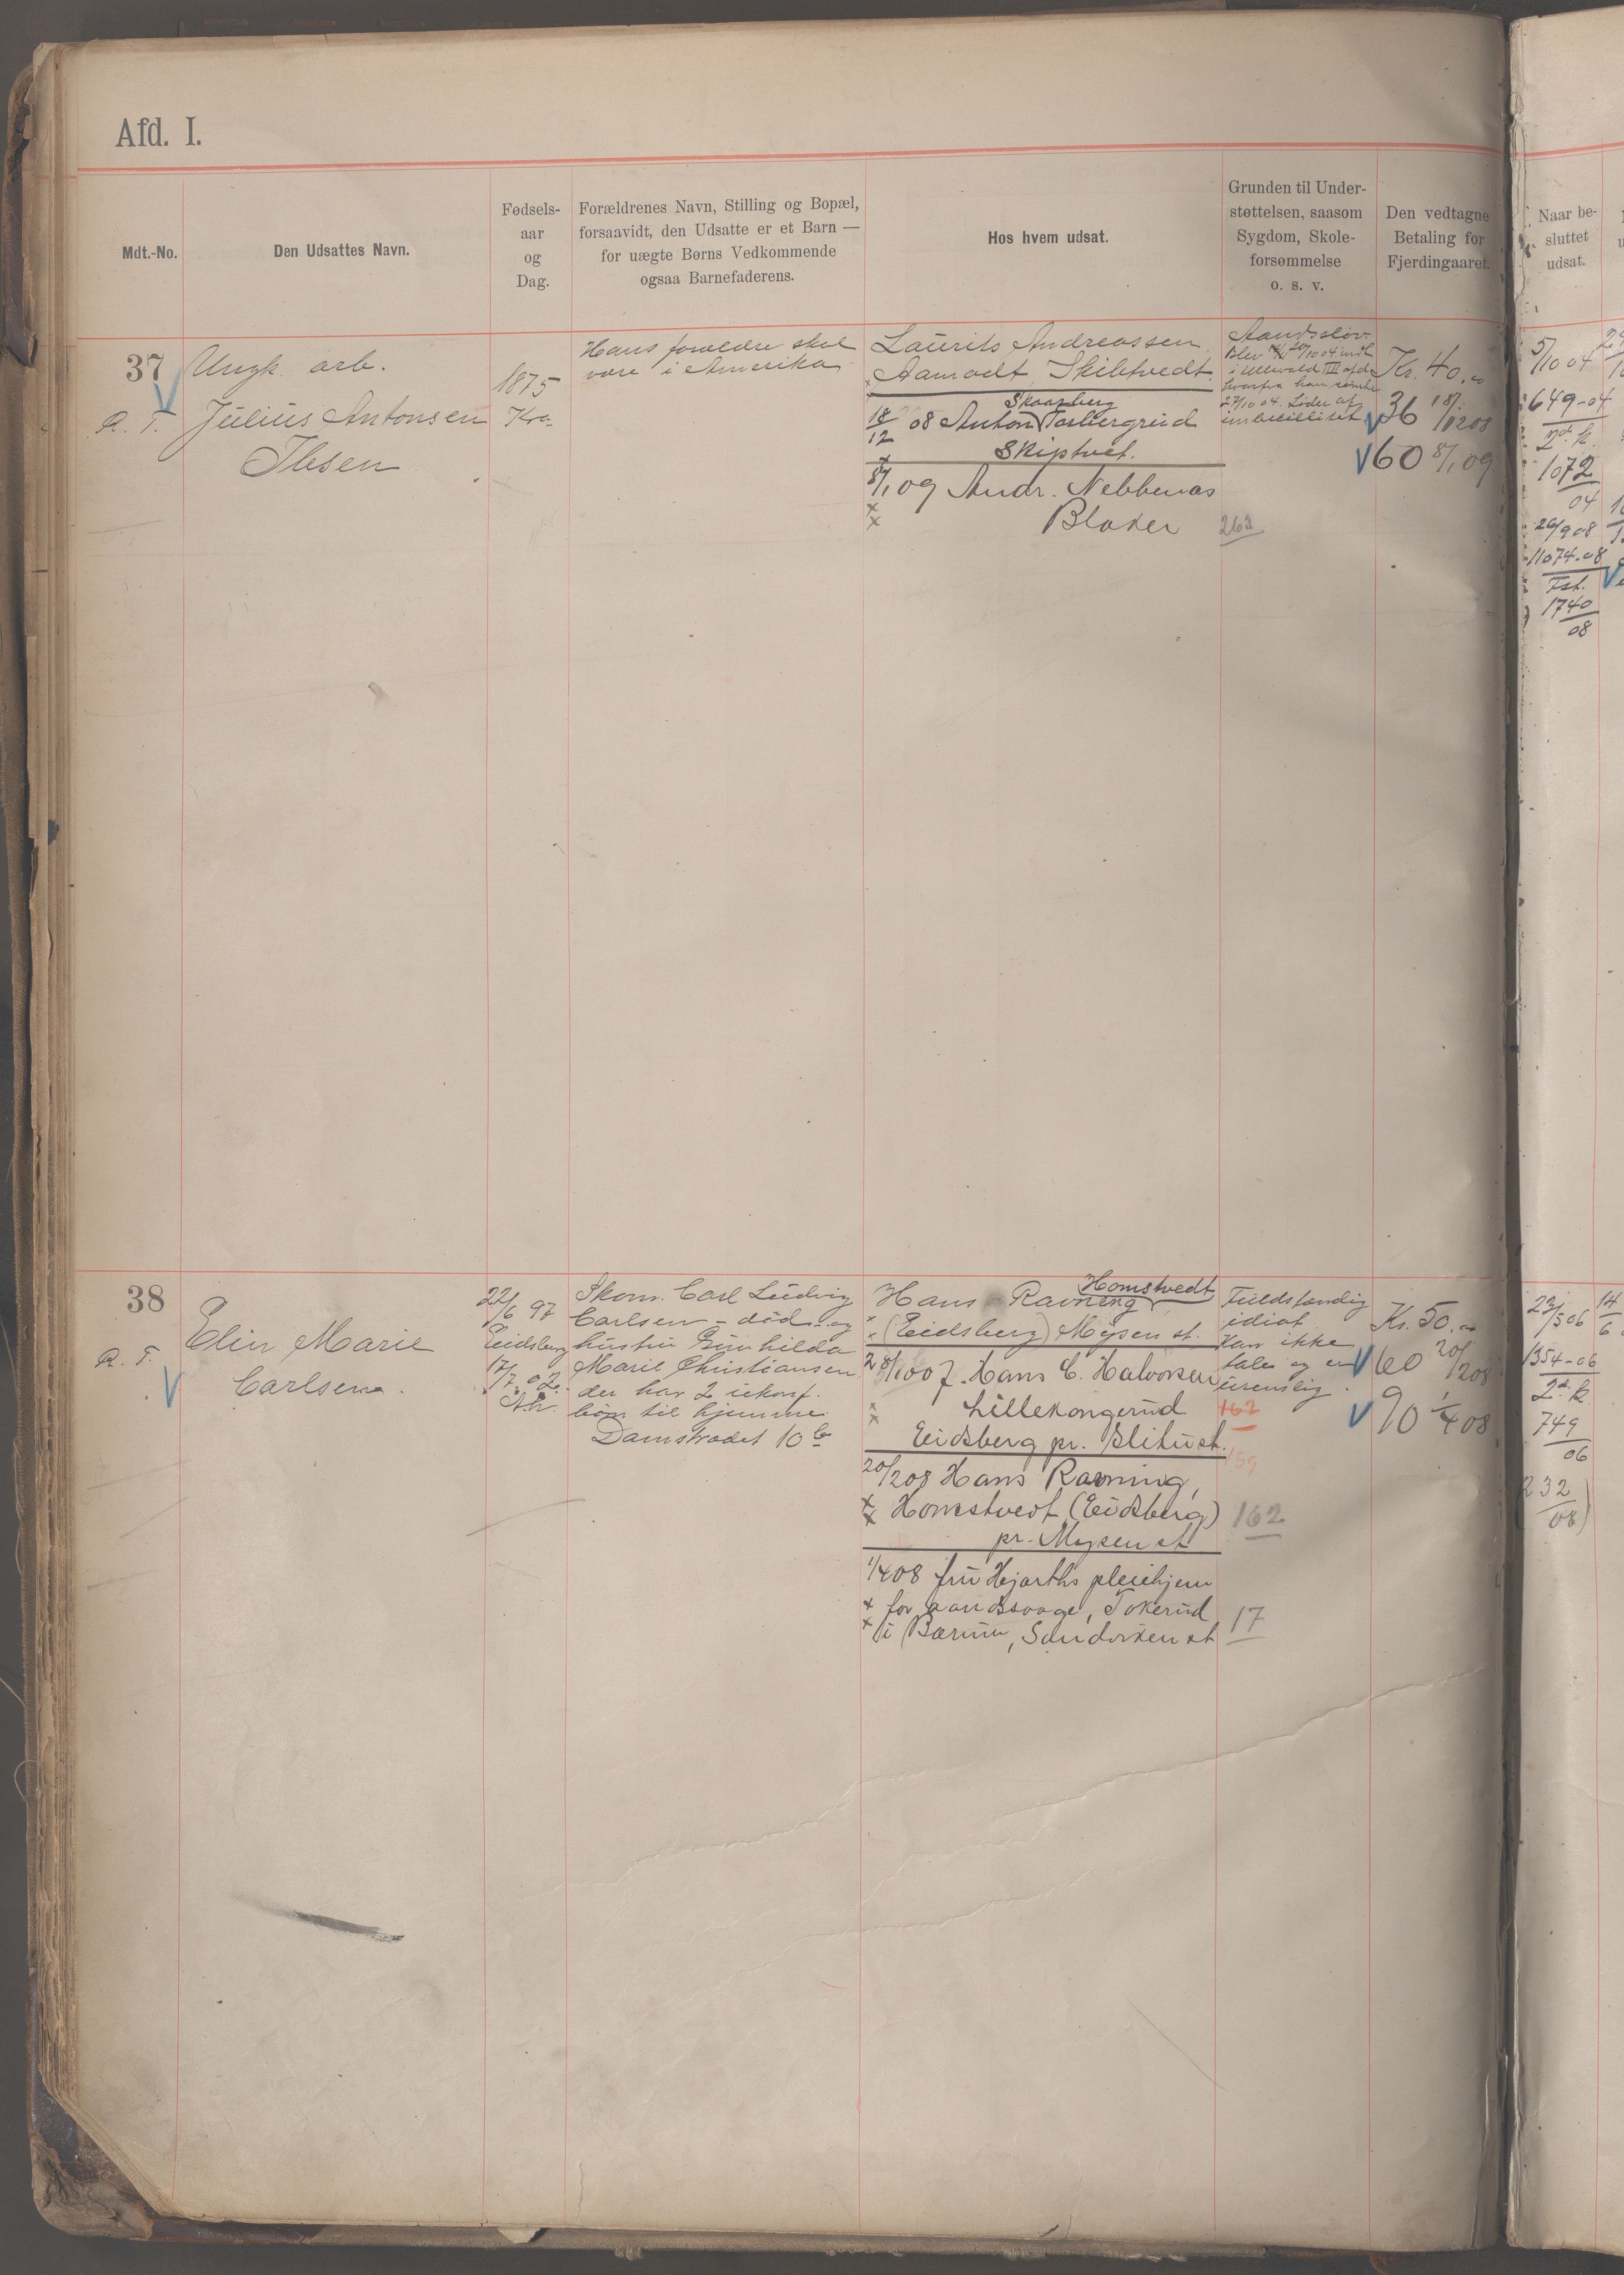 Afd. I.
Mdt.-No.
Den Udsattes Navn.
Fødsels-
aar
og
Dag.
Forældrenes Navn, Stilling og Bopæl,
forsaavidt, den Udsatte er et Barn —
for uægte Børns Vedkommende
ogsaa Barnefaderens.
Hos hvem udsat.
Grunden til Under-
støttelsen, saasom
Sygdom, Skole-
forsømmelse
o. s. v.
Den vedtagne
Betaling for
Fjerdingaaret.
Naar be-
sluttet
udsat.
37
R. T.
Ungk. arb.
Julius Antonsen
Ibsen
1875
Kra.
Hans forældre skal
være i Amerika
Laurits Andreassen,
Aamodt, Skibtvedt.
Skaarberg
18/12 08 Anton Tosbergrud
Skiptvet.
8/1 09 Andr. Nebbenæs
Blaker
263
Aandssløv.
Blev 20/10 04 indl.
i Ullevold III afd.
hvorfra han rømte
27/10 04. Lider af
imbecillitet
Kr. 40.
36 18/12 08
60 8/1 09
5/10 04
649-04
2det k.
1072
04
26/9 08
11074-08
Fst.
1740
08
38
R. T.
Elin Marie
Carlsen.
22/6 97
Eidsberg
17/7 02.
Ah.
Skom. Carl Ludvig
Carlsen - død - og
hustru Gunhilda
Marie Christiansen,
der har 2 ukonf.
børn til hjemme
Damstrædet 10 b
Homstvedt
Hans Ravneng
(Eidsberg) Mysen st.
28/10 07. Hans C. Halvorsen
Lillekongerud
Eidsberg pr. Slitu st.
20/2 08 Hans Ravning,
Homstvedt (Eidsberg)
pr. Mysen st
1/4 08 fru Hejarths pleiehjem
for aandssvage, Tokerud
i Bærum, Sandviken st
Fuldstændig
idiot
Kan ikke
tale og er
urenslig.
162
159
162
17
Kr. 50.
60 20/2 08
90 1/4 08
23/5 06
1354-06
2det k
749
06
232
08)
14
6